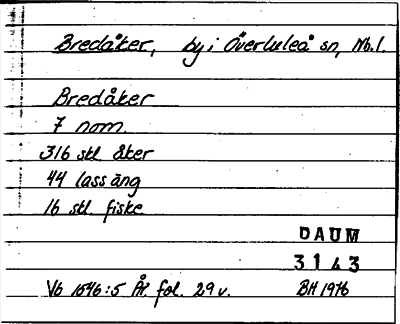 Bredåker, by i Överluleå sn, Nb.l.
Bredåker
7 nom.
316 stl åker
44 lass äng
16 stl. fiske
DAUM
3143
Vb 1646:5 År. fol. 29 v. BH 1976